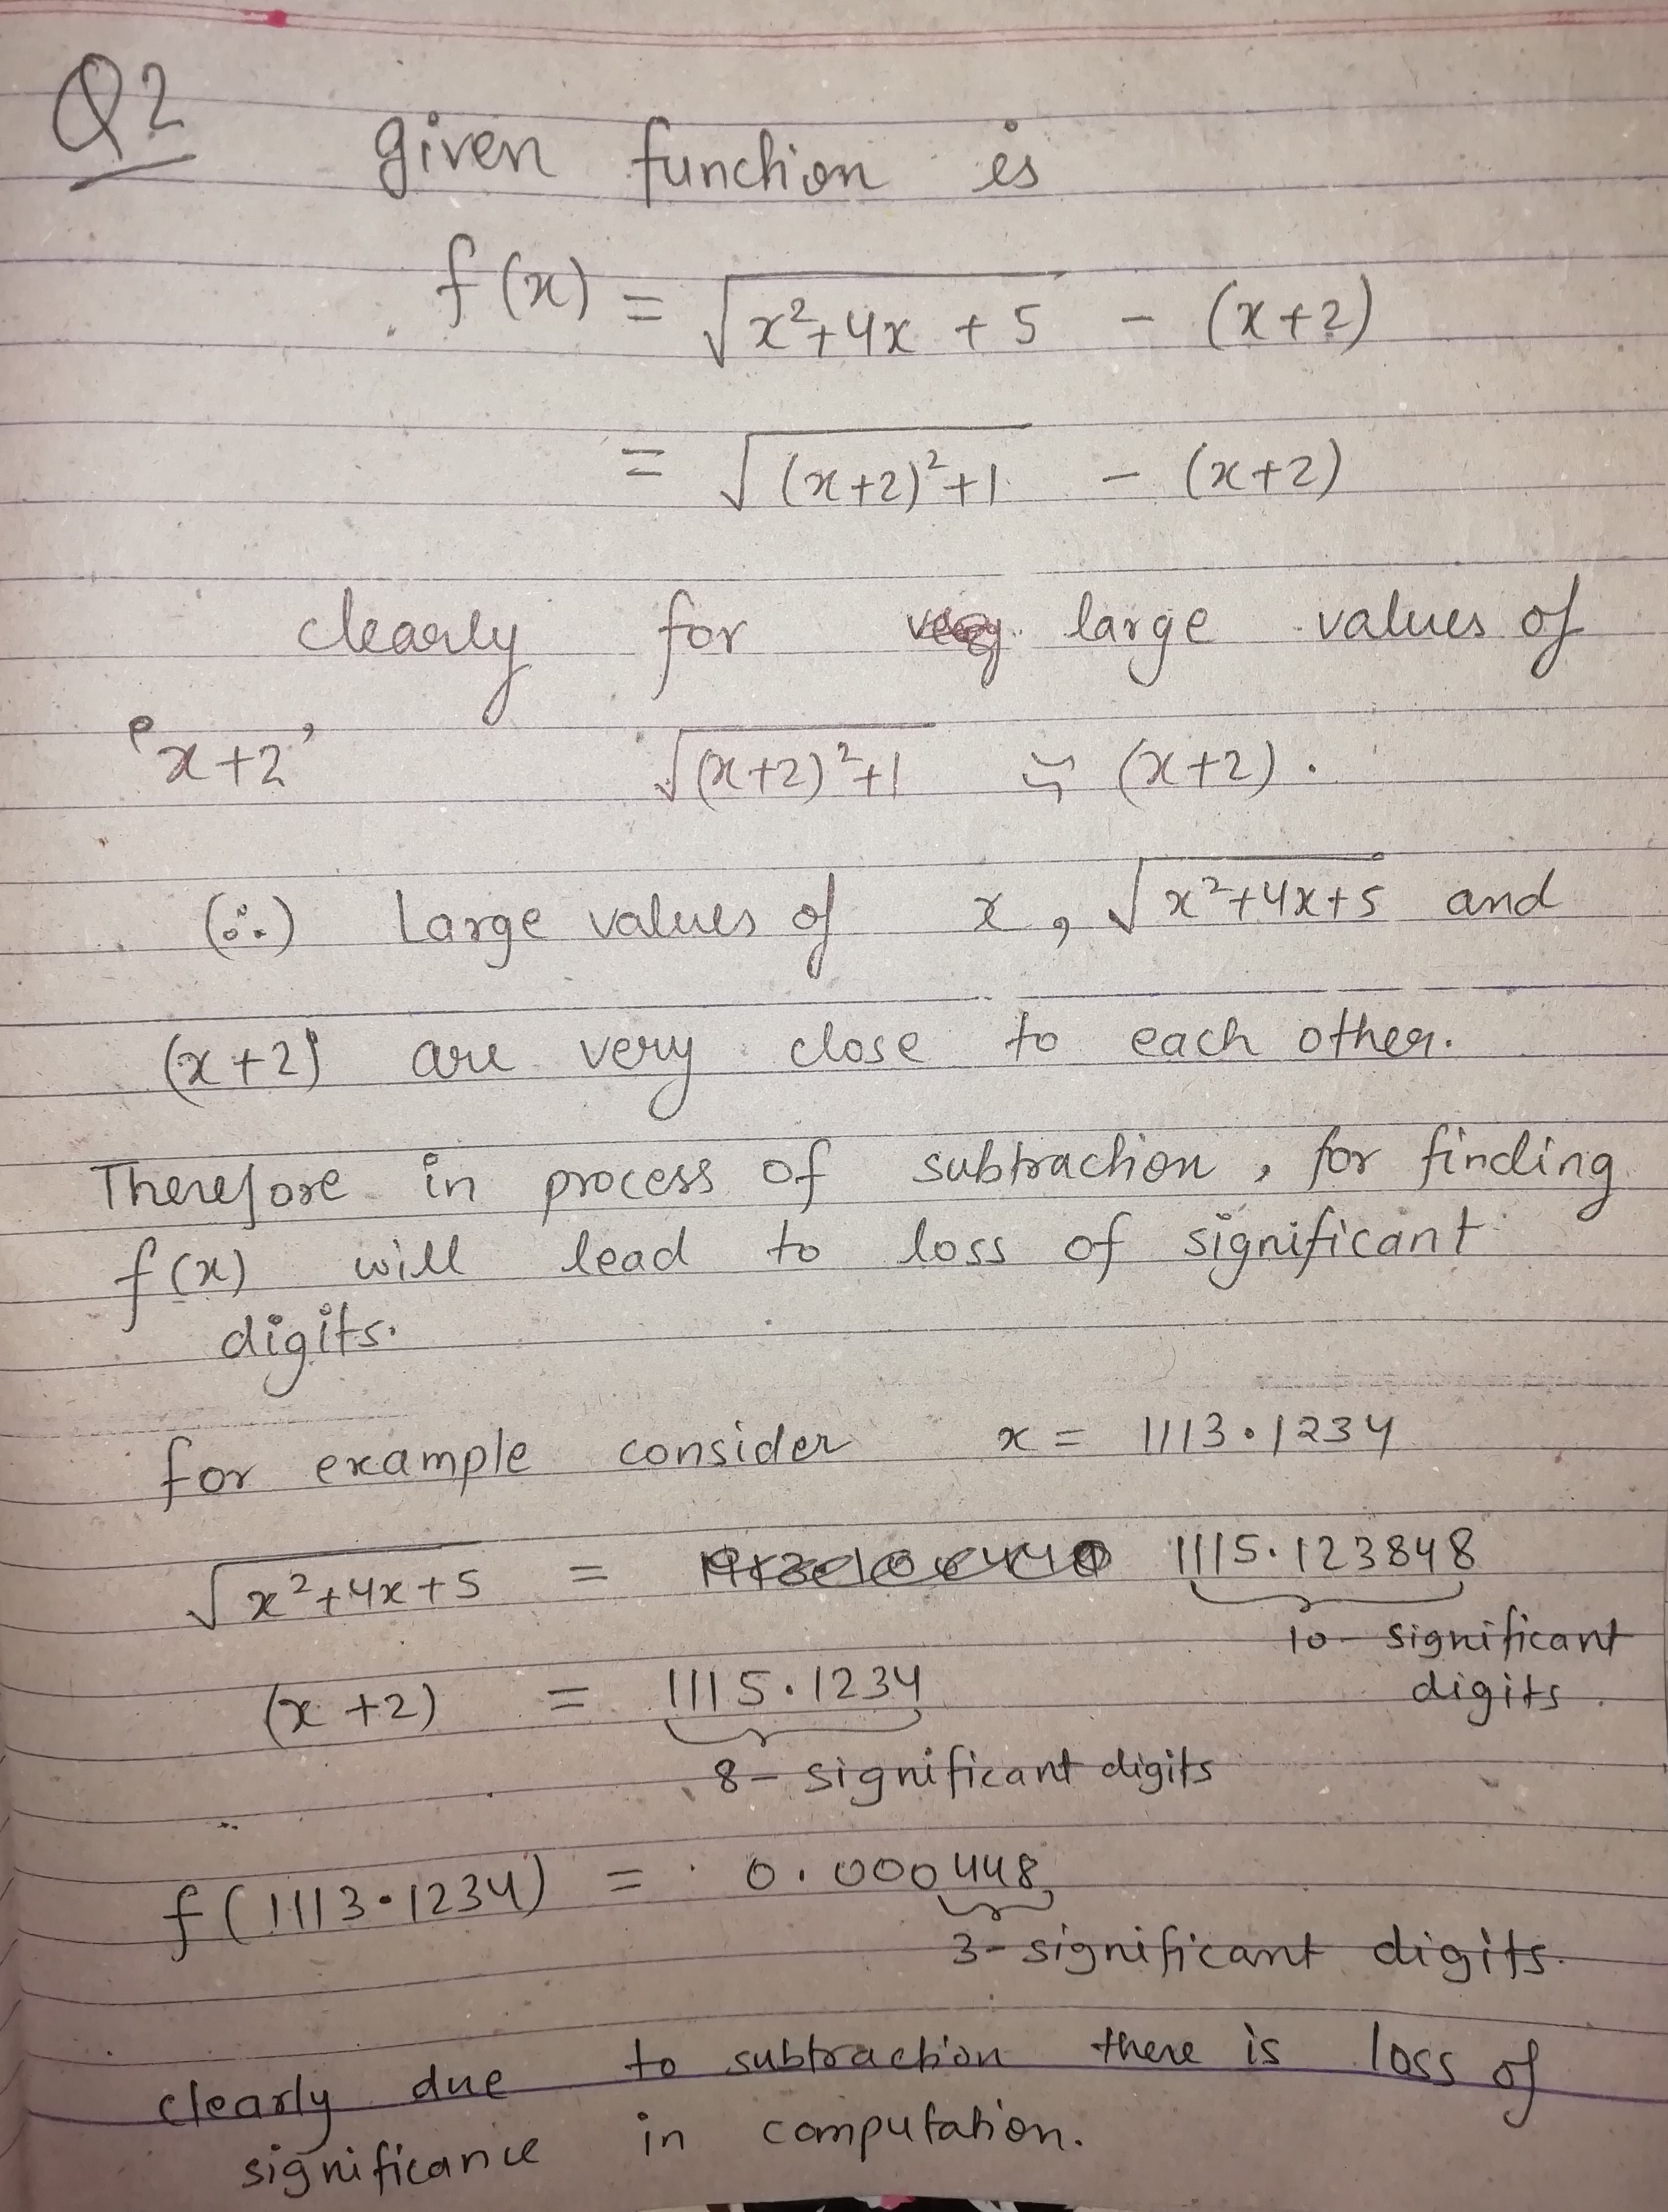 Q2
given function is
f(x) = √(x²+4x+5) - (x+2)
= √((x+2)²+1) - (x+2)
clearly for very large values of
'x+2' √((x+2)²+1) ≃ (x+2).
(∴) Large values of x, √(x²+4x+5) and
(x+2) are very close to each other.
Therefore in process of subtraction, for finding
f(x) will lead to loss of significant
digits.
for example consider x = 1113.1234
√(x²+4x+5) = 1115.123848
10- significant
digits.
(x+2) = 1115.1234
8- significant digits
f(1113.1234) = 0.000448
3- significant digits.
clearly due to subtraction there is loss of
significance in computation.